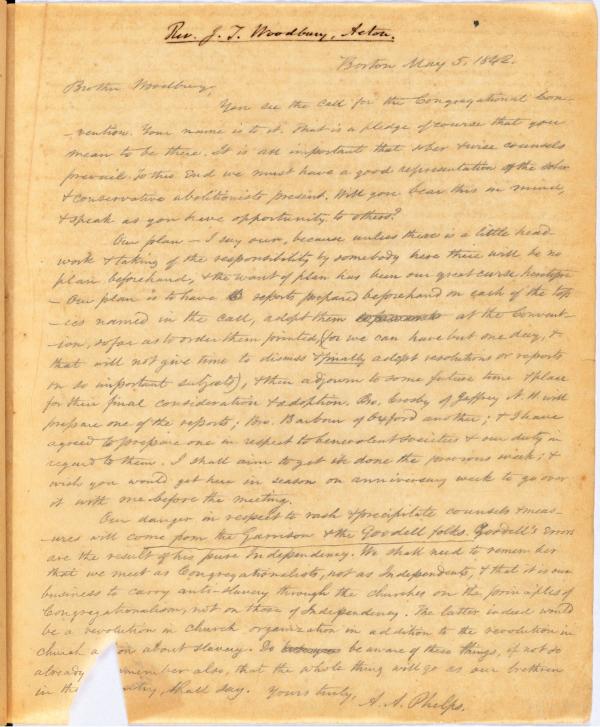 Rev. J. T. Woodbury, Acton.
Boston May 5, 1842.
Brother Woodbury,
You see the call for the Congregational Con-
-vention. Your name is to it. That is a pledge of course that you
mean to be there. It is all important that sober & wise counsels
prevail. To this end we must have a good representation of the sober
& conservative abolitionists present. Will you bear this in mind,
& speak as you have opportunity to others?
Our plan – I say our, because unless there is a little head
work & taking of the responsibility by somebody here there will be no
plan beforehand, & the want of plan has been our great curse heretofore
– Our plan is to have reports prepared beforehand on each of the top
-ics named in the call, adopt them at the Convent-
-ion, so far as to order them printed, (for we can have but one day, &
that will not give time to discuss & finally adopt resolutions or reports
on so important subjects), & then adjourn to some future time & place
for their final consideration & adoption. Bro. Crosby of Jaffrey N. H. will
prepare one of the reports; Bro. Barbour of Oxford another; & I have
agreed to prepare one in respect to benevolent societies & our duty in
regard to them. I shall aim to get it done the previous week; &
wish you would get here in season on anniversary week to go over
it with me before the meeting.
Our danger in respect to rash & precipitate counsels & meas-
ures will come from the Garrison & the Goodell folks. Goodell's errors
are the result of his pure Independency. We shall need to remember
that we meet as Congregationalists, not as Independents, & that it is our
business to carry anti-slavery through the churches on the principles of
Congregationalism, not on those of Independency. The latter indeed would
be a revolution in church organization in addition to the revolution in
church about slavery. Do be aware of these things, if not so
already also, that the whole thing will go as our brethren
in the shall say. Yours truly,
A. A. Phelps.